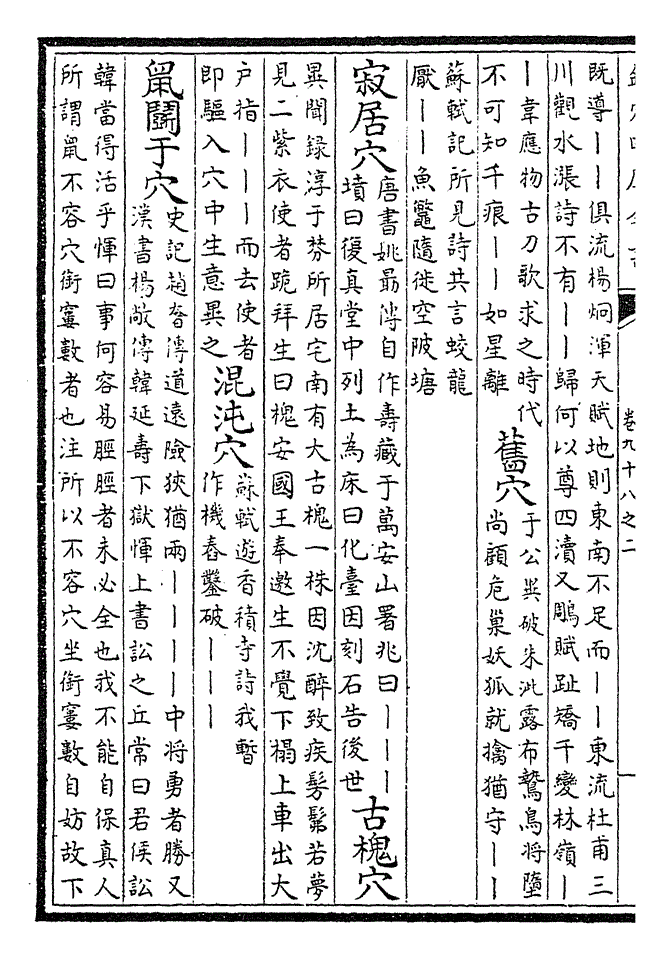 卷九十八之二
一
既導丨丨俱流楊炯渾天賦地則東南不足而丨丨東流杜甫三
川觀水漲詩不有丨丨歸何以尊四瀆又鵰賦趾矯千變林嶺丨
丨韋應物古刀歌求之時代
不可知千痕丨丨如星離
舊穴
于公異破朱泚露布鷙鳥將墮
尚顧危巢妖狐就擒猶守丨丨
蘇軾記所見詩共言蛟龍
厭丨丨魚鼈隨徙空陂塘
寂居穴
唐書姚朂傳自作壽藏于萬安山署兆曰丨丨丨
墳曰復真堂中列土為床曰化臺因刻石告後世
古槐穴
異聞録淳于棼所居宅南有大古槐一株因沈醉致疾髣髴若夢
見二紫衣使者跪拜生曰槐安國王奉邀生不覺下榻上車出大
户指丨丨丨而去使者
即驅入穴中生意異之
混沌穴
蘇軾遊香積寺詩我暫
作機舂鑿破丨丨丨
鼠鬭于穴
史記趙奢傳道遠險狹猶兩丨丨丨丨中將勇者勝又
漢書楊敞傳韓延壽下獄惲上書訟之丘常曰君侯訟
韓當得活乎惲曰事何容易脛脛者未必全也我不能自保真人
所謂鼠不容穴銜窶數者也注所以不容穴坐銜窶數自妨故下